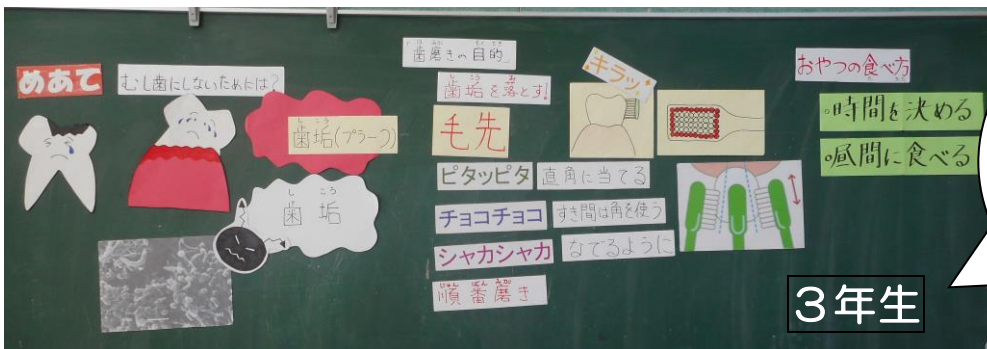 めあて
むし歯にしないためには?
歯垢(プラーク)
しこう
歯垢
歯磨きの目的
しこう
歯垢を落とす!
毛先
ピタッピタ 直角に当てる
チョコチョコ すき間は角を使う
シャカシャカ なでるように
順番磨き
キラッ
おやつの食べ方
◦時間を決める
◦昼間に食べる
3年生